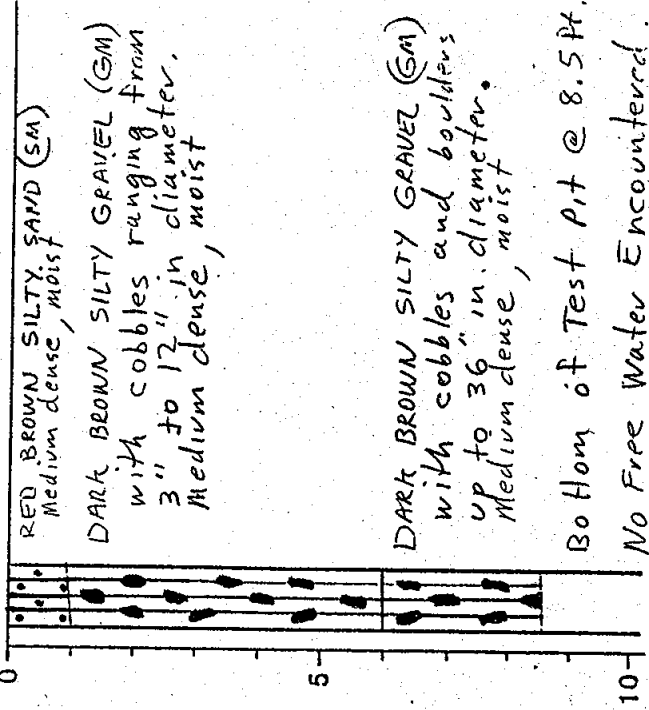 RED BROWN SILTY SAND (SM)
Medium dense, moist
DARK BROWN SILTY GRAVEL (GM)
with cobbles ranging from
3" to 12" in diameter.
Medium dense, moist
DARK BROWN SILTY GRAVEL (GM)
with cobbles and boulders
up to 36" in diameter.
Medium dense, moist
Bottom of Test Pit @ 8.5 ft.
No Free Water Encountered.
0
5
10